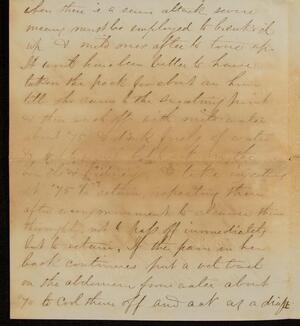 when there is a severe attack severe
means must be employed to break it
up & mild ones after to tone up.
It would have been better to have
taken the pack for about an hour
till she came to the sweating point
& then wash off with mild water
about 75 & drink freely of water
&
& to take injections
at 75 to return, repeating them
after every movement to cleanse them
thoroughly, not to pass off immediately
but to return. If the pain in her
back continues put a wet towel
on the abdomen from water about
70 to cool them off and act as a draft